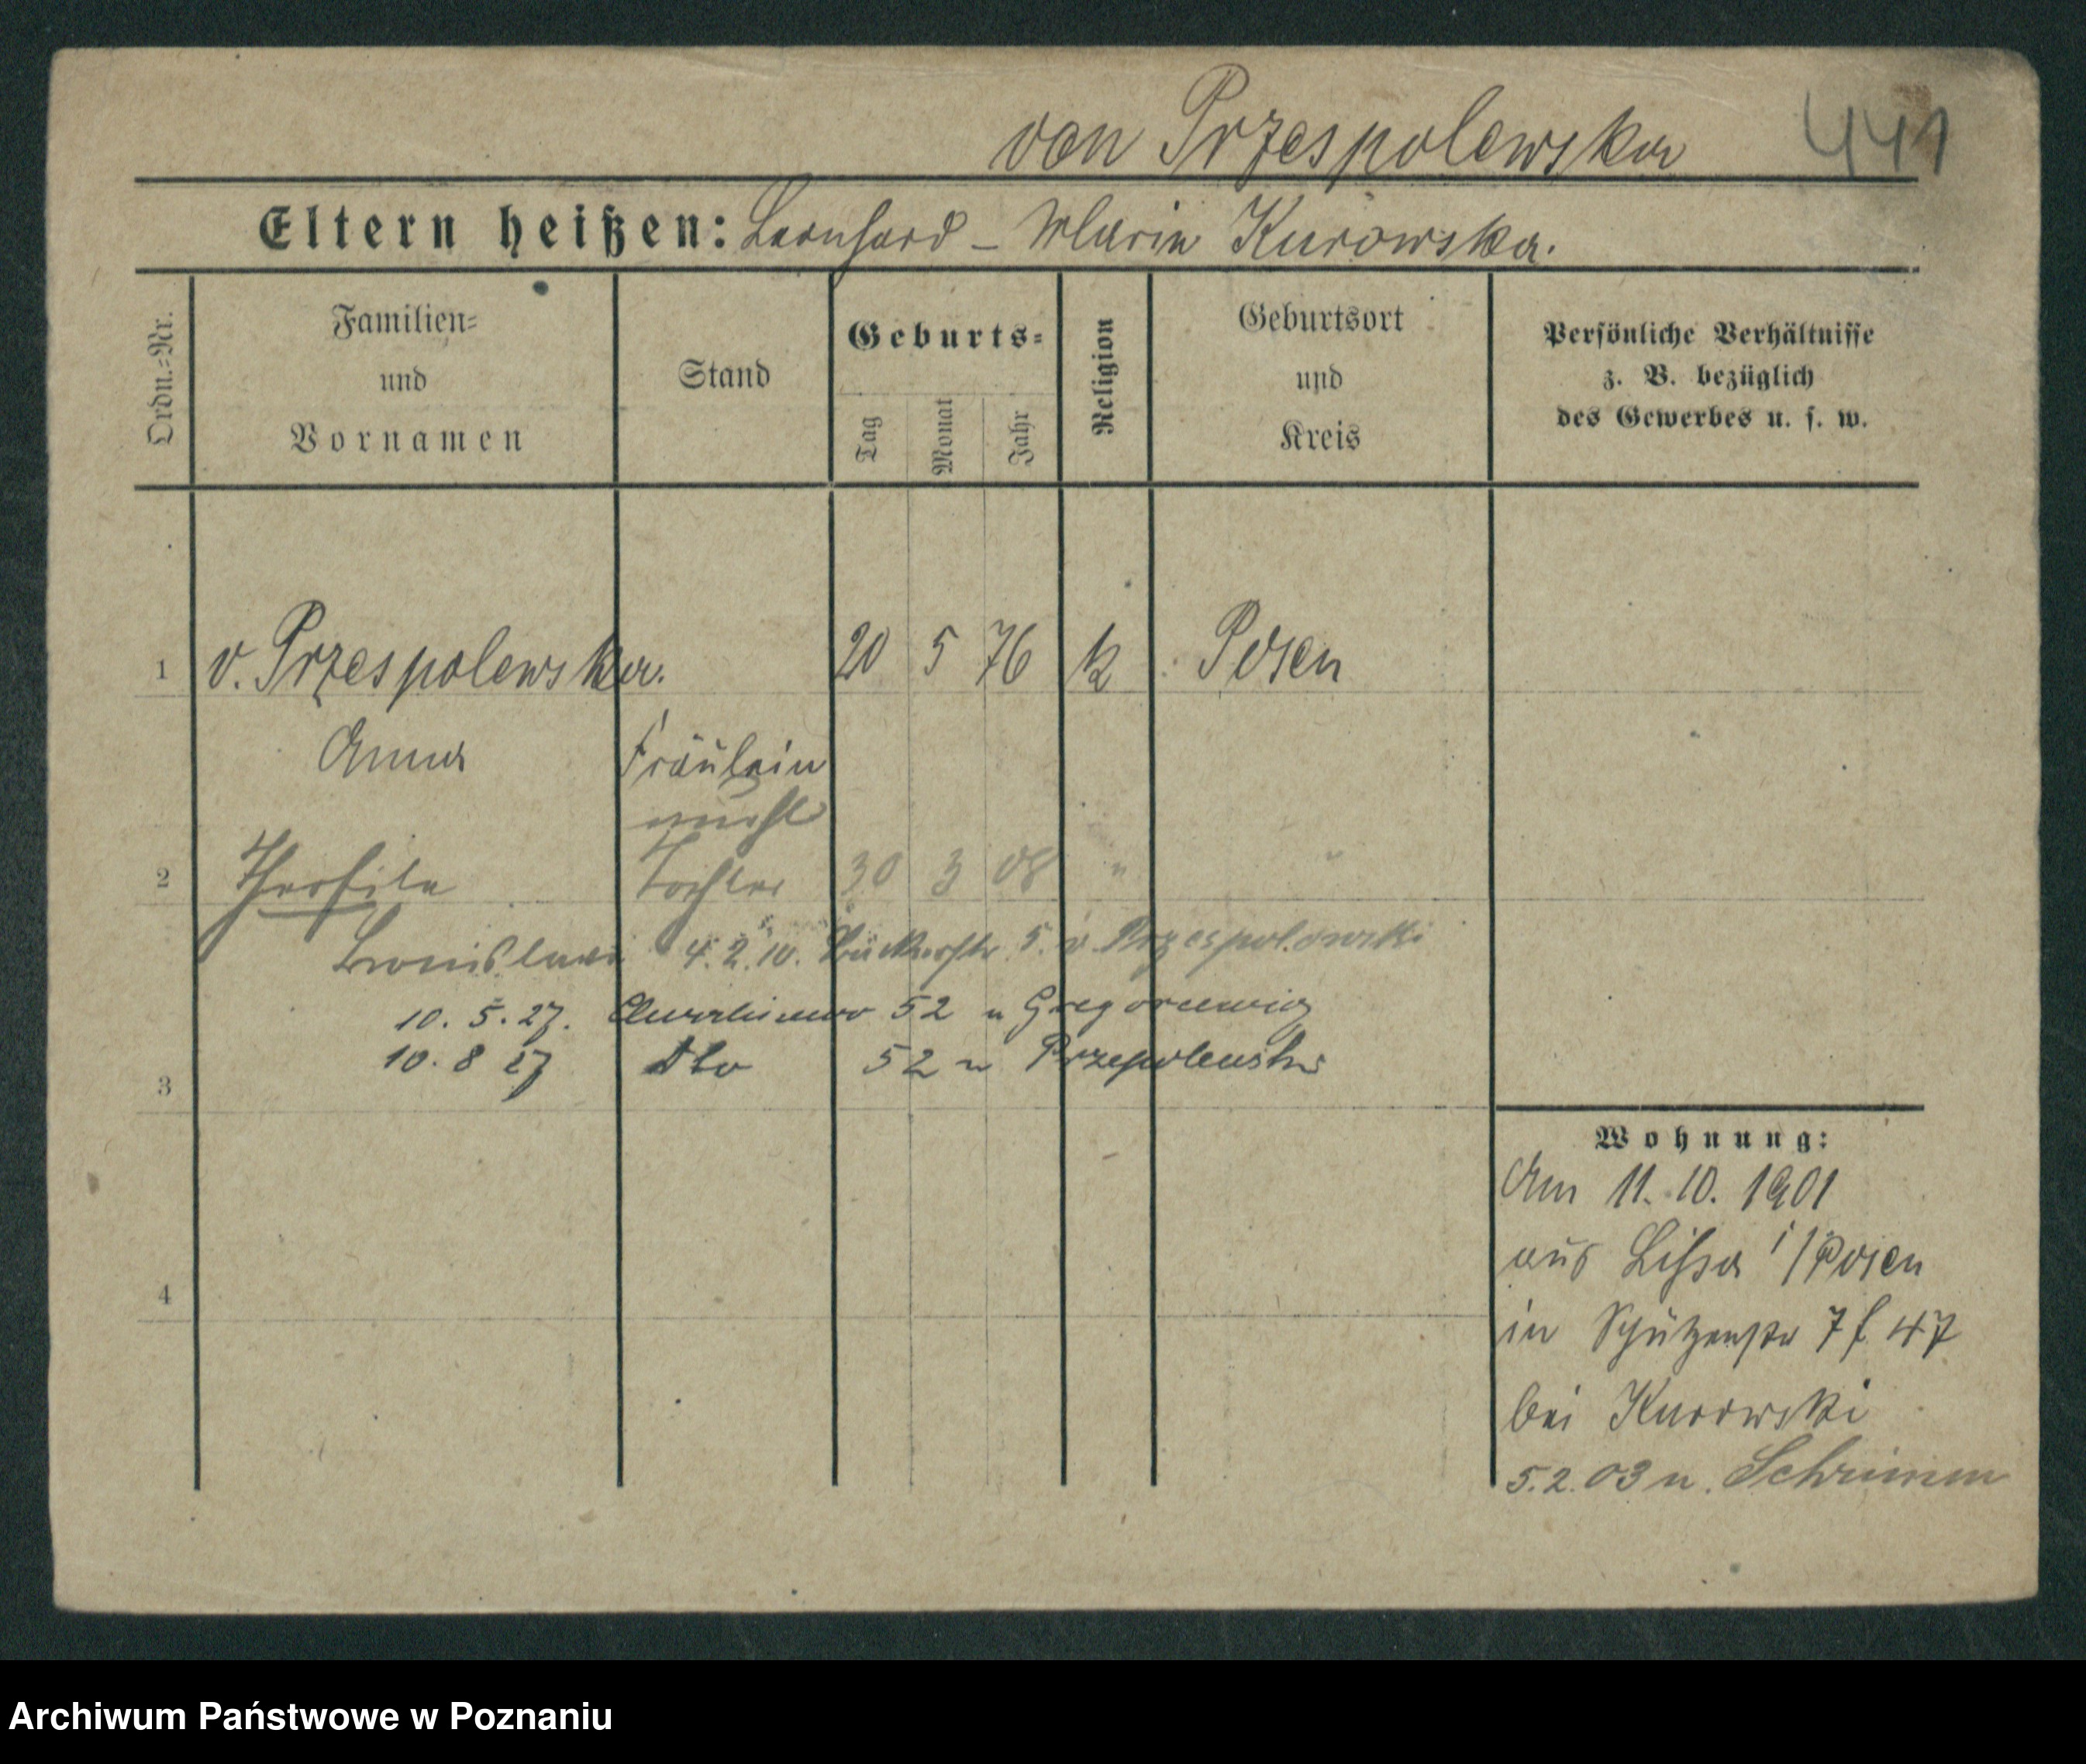 von Przespolewska 441
Eltern heißen: Leonhard – Maria Kurowska.
Ordn.-Nr.
Familien-
und
Vornamen
Stand
Geburts-
Tag
Monat
Jahr
Religion
Geburtsort
und
Kreis
Persönliche Verhältnisse
z. B. bezüglich
des Gewerbes u. s. w.
1 v. Przespolewska. 20 5 76 k Posen
Anna Fräulein
2 Theofila Tochter 30 3 08 " "
Bronislawa 4.2.10. 5. v. Przespolewski
10. 5. 27. 52 u Gregorcewicz
10. 8 27 dto 52 u
3
4
Wohnung:
Am 11. 10. 1901
aus Lissa i/Posen
in Schützenstr 7 f 47
bei Kurowski
5.2.03 n. Schrimm
Archiwum Państwowe w Poznaniu